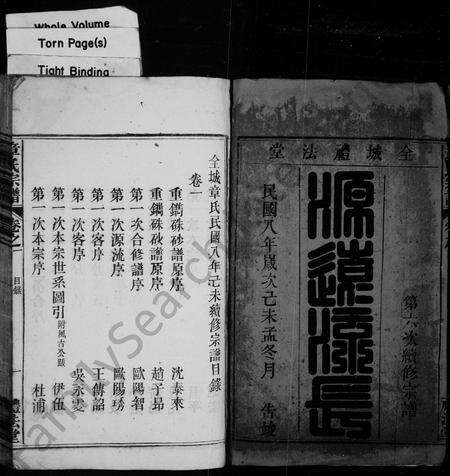 Whole Volume
Torn Page(s)
Tight Binding
全城禮法堂
第六次續修宗譜
源遠流長
民國八年歲次己未孟冬月 告竣
全城章氏民國八年己未續修宗譜目錄
卷一
重鐫硃砂譜原序 沈泰來
重鐫硃砂譜原序 趙子昂
第一次合修譜序 歐陽智
第一次源流序 歐陽琇
第一次客序 王傳詔
第一次客序 吳永
第一次本宗世系圖引 附風古公題 伊伍
第一次本宗序 杜浦
章氏宗譜
卷之一
目錄
一
禮法堂
FamilySearch